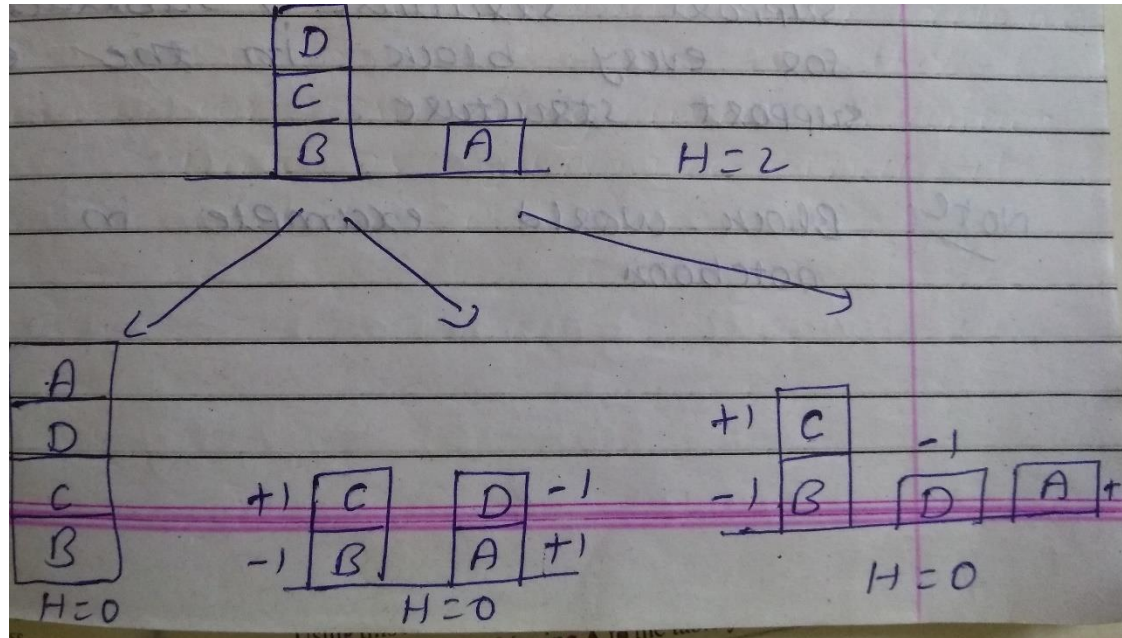 D
C
B A H=2
A
D
C
B
H=0
+1 C D -1
-1 B A +1
H=0
+1 C
-1
-1 B D A +
H=0